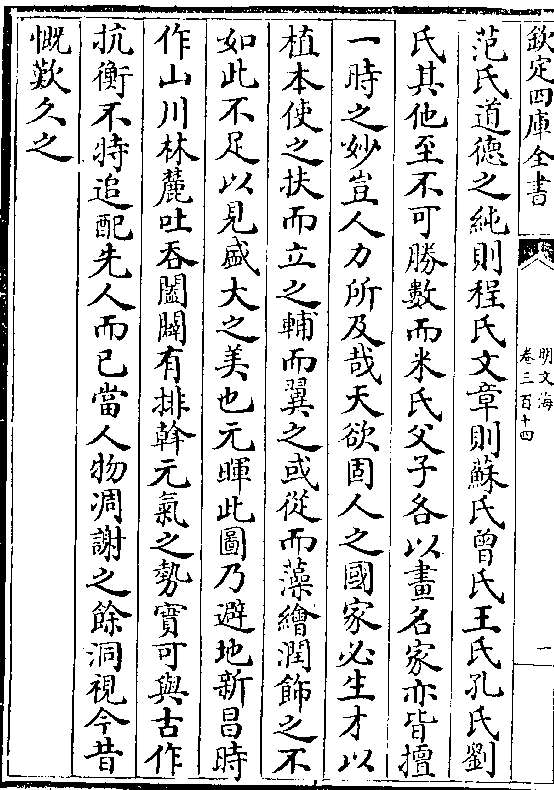 欽定四庫全書
明文海
卷三百十四
一
范氏道德之純則程氏文章則蘇氏曾氏王氏孔氏劉
氏其他至不可勝數而米氏父子各以畫名家亦皆擅
一時之妙豈人力所及哉天欲固人之國家必生才以
植本使之扶而立之輔而翼之或從而藻繪潤飾之不
如此不足以見盛大之美也元暉此圖乃避地新昌時
作山川林麓吐吞闔闢有排斡元氣之勢實可與古作
抗衡不特追配先人而已當人物凋謝之餘洞視今昔
慨歎久之